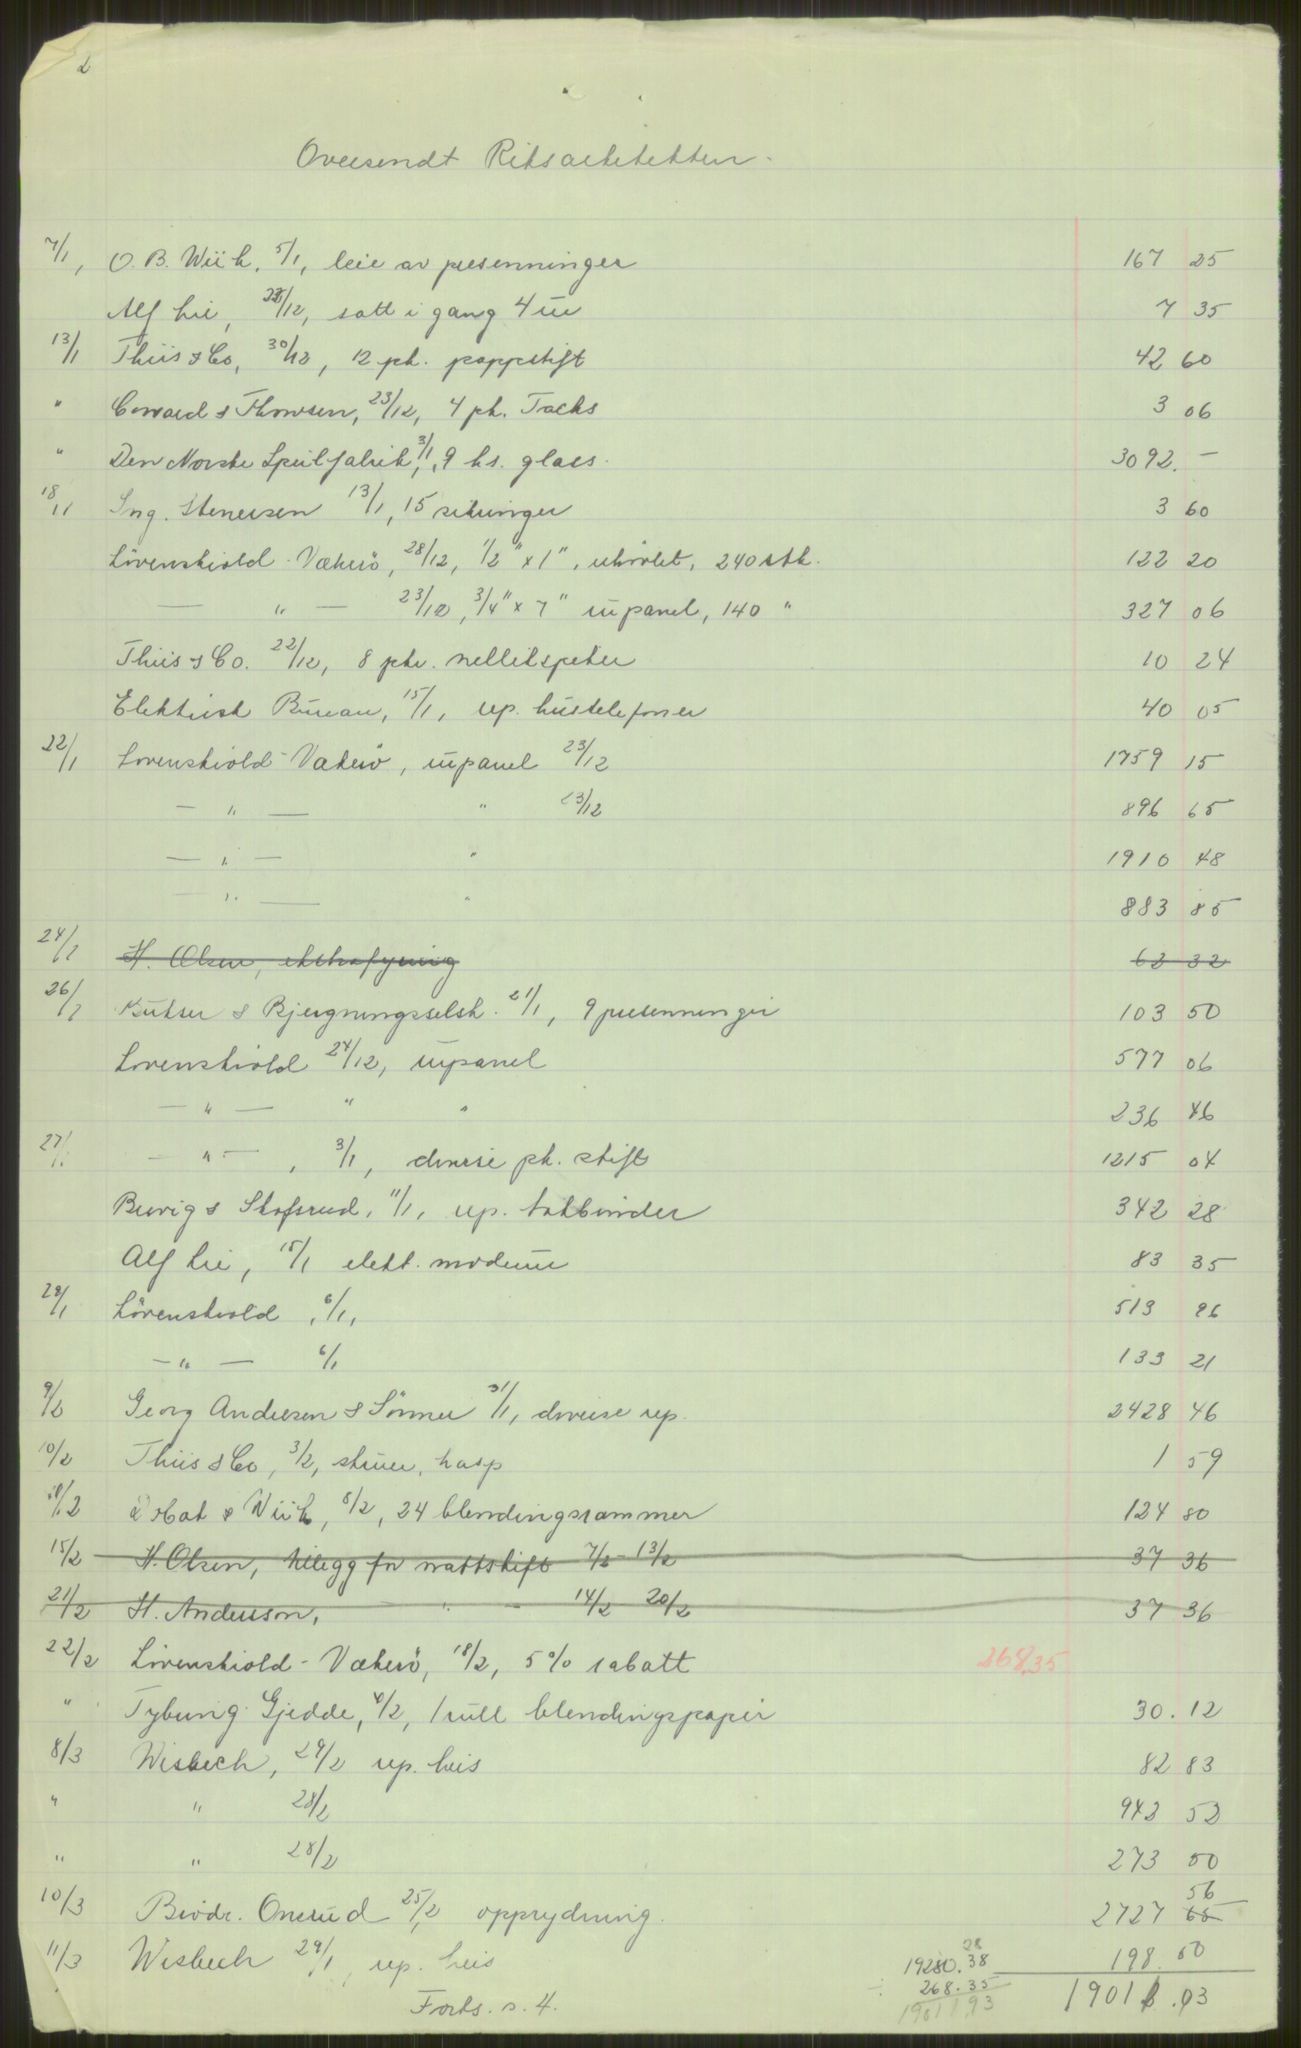 2
Oversendt Riksarkitekten.
7/1, O.B. Wiik, 5/1, leie av presenninger 167 25
Alf Lie, 23/12, satt i gang 4 ur 7 35
13/1 Thiis & Co, 30/12, 12 pk. pappstift 42 60
" Coward & Thowsen, 23/12, 4 pk. Tacks 3 06
" Den Norske Speilfabrik, 3/1, 9 ks. glass. 3092. —
18/1 Ing. Stenersen 13/1, 15 sikringer 3 60
Lövenskiold-Vækerö, 28/12, 1/2" x 1", uhövlet, 240 stk. 122 20
— " — 23/12, 3/4" x 7" rupanel, 140 " 327 06
Thiis & Co. 22/12, 8 pkr. nellikspiker 10 24
Elektrisk Bureau, 15/1, rep. hustelefoner 40 05
22/1 Lövenskiold-Vækerö, rupanel 23/12 1759 15
— " — " 23/12 896 65
— " — " 1910 48
— " — " 883 85
24/1 H. Olsen, ekstrafyring 62 32
26/1 Bukser & Bjergningsselsk. 21/1, 9 presenninger 103 50
Lövenskiold 24/12, rupanel 577 06
— " — " " 236 46
27/1 — " —, 3/1, diverse pk. stift 1215 04
Bervig & Skofsrud, 11/1, rep. takbinder 342 28
Alf Lie, 15/1 elekt. moderur 83 35
28/1 Lövenskiold, 6/1, 513 96
— " — 6/1 133 21
9/2 Georg Andresen & Sönner 31/1, diverse rep. 2428 46
10/2 Thiis & Co, 3/2, skruer, hasp 1 59
11/2 & Wiik, 8/2, 24 blendingsrammer 124 80
15/2 H. Olsen, tillegg for nattskift 7/2 - 13/2 37 36
21/2 H. Anderson, " - 14/2 20/2 37 36
22/2 Lövenskiold-Vækerö, 18/2, 5% rabatt 268,35
" Tybring Gjedde, 4/2, 1 rull blendingspapir 30. 12
8/3 Wisbech, 29/2 rep. heis 82 83
" " 28/2 942 52
" " 28/2 273 00
10/3 Brödr. Onsrud 25/2, opprydning. 2727 65 56
11/3 Wisbech 29/1, rep. heis 198. 50
19280.38 28
÷ 268.35
19011,93
19011.93
Forts. s. 4.